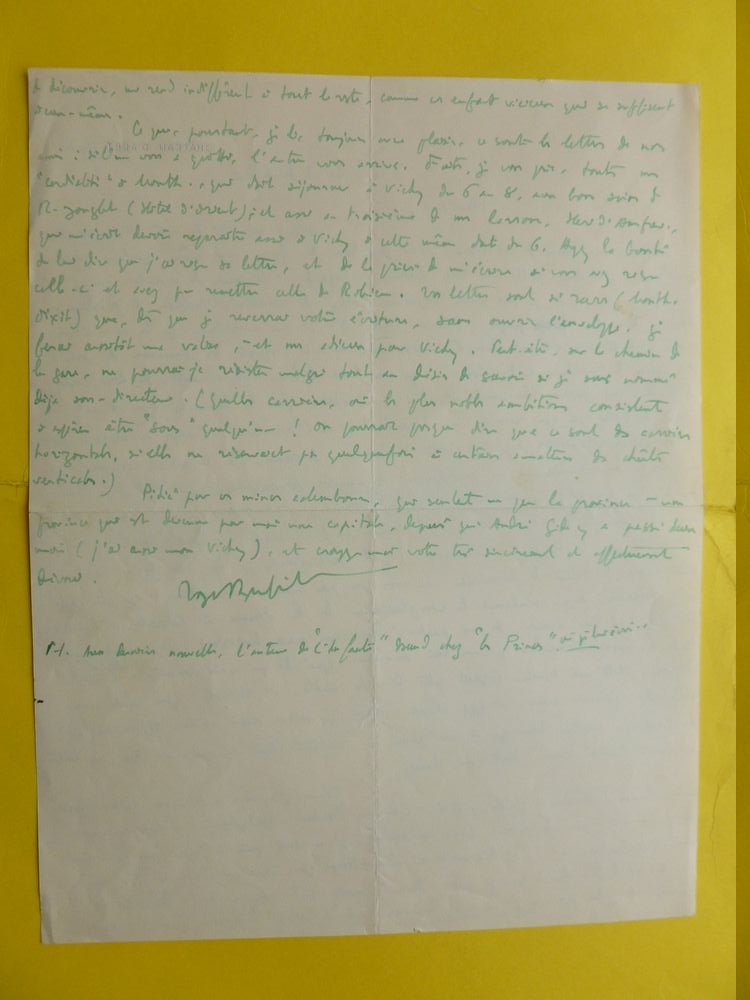 découvrir, me rend indifférent à tout le reste, comme ces enfants vicieux qui se suffisent
à eux-mêmes.
Ce que, pourtant, je lis toujours avec plaisir, ce sont les lettres de nos
amis : si l'un vous a quitté, l'autre vous arrive. Faites, je vous prie, toutes mes
"cordialités" à Month., qui doit séjourner à Vichy du 6 au 8, aux bons soins de
R. (Hôtel d'Orient) ; et aussi au troisième
qui m'écrit devoir reparaître aussi à Vichy à cette même date du 6. Ayez la bonté
de leur dire que j'ai reçu sa lettre, et de le prier de m'écrire si vous avez reçu
celle-ci et avez pu remettre celle de Robien. Vos lettres sont si rares (Month.
dixit) que, dès que je reverrai votre écriture, sans ouvrir l'enveloppe, je
ferai aussitôt une valise, et me pour Vichy. Peut-être, sur le chemin de
la gare, ne pourrai-je résister malgré tout au désir de savoir si je suis nommé
déjà sous-directeur. (Quelle carrière, où les plus nobles ambitions consistent
à espérer être "sous" quelqu'un ! On pourrait presque dire que ce sont des carrières
horizontales, si elles ne réservaient pas quelquefois à certains amateurs des chutes
verticales.)
Pitié pour ces minces calembours, qui sentent un peu la province – une
province qui est devenue pour moi une capitale, depuis qu'André Gide y a passé deux
mois (j'ai aussi mon Vichy), et croyez-moi votre très sincèrement et affectueusement
dévoué.
P.S. Aux dernières nouvelles, l'auteur de "l'Infante" descend chez "les Princes"